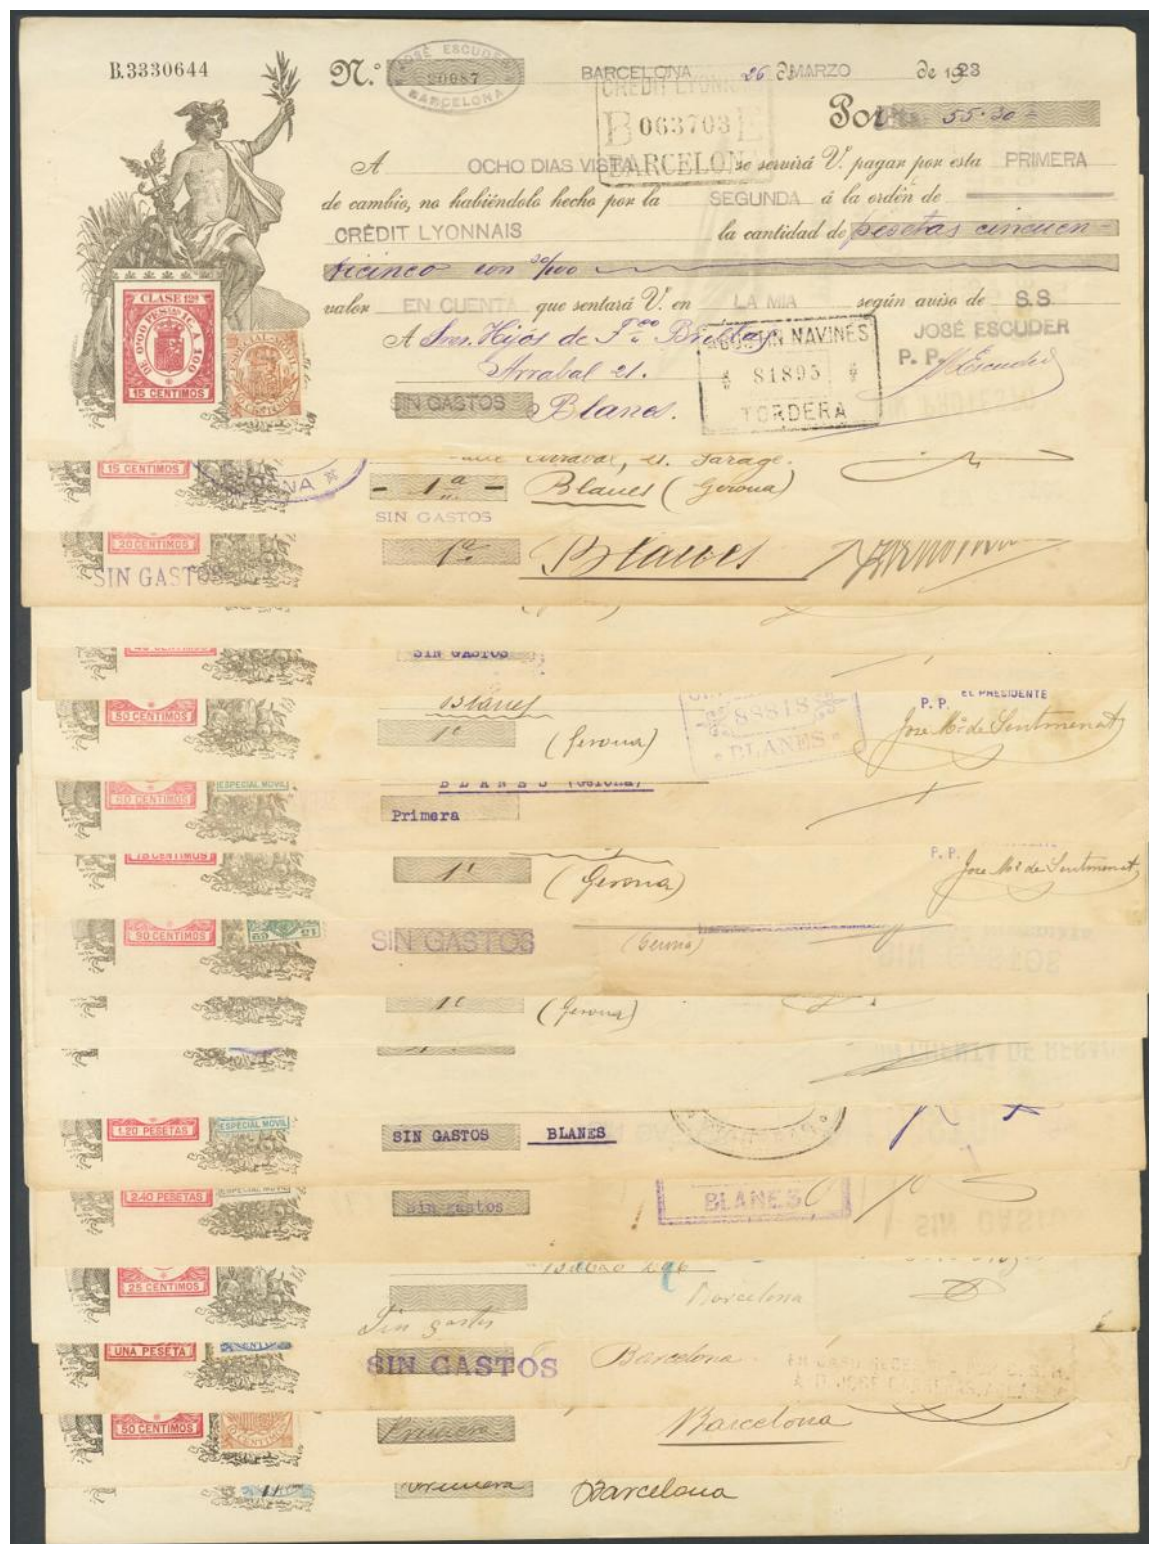 B.3330644
N.º 20087
JOSÉ ESCUDER
BARCELONA
BARCELONA 26 de MARZO de 1923
CRÉDIT LYONNAIS
B 063703 E
BARCELONA
Por 55·30
A OCHO DIAS VISTA se servirá V. pagar por esta PRIMERA
de cambio, no habiéndolo hecho por la SEGUNDA á la orden de
CRÉDIT LYONNAIS la cantidad de pesetas cincuen-
ticinco con 30/100
valor EN CUENTA que sentará V. en LA MIA según aviso de S.S.
A Sres. Hijos de Arrabal 21.
SIN GASTOS Blanes.
AGUSTIN NAVINÉS
81895
TORDERA
JOSÉ ESCUDER
P. P. Escuder
CLASE 12ª
DE 0'10 PESTAS 1C. A 100
15 CENTIMOS
ESPECIAL MOVIL
15 CENTIMOS
Arrabal, 21. Garage.
1ª Blanes (Gerona)
SIN GASTOS
20 CENTIMOS
SIN GASTOS
1ª Blanes
SIN GASTOS
50 CENTIMOS
Blanes
1ª (Gerona)
89818
BLANES
EL PRESIDENTE
P. P.
Jose Mª de Sentmenat
60 CENTIMOS
ESPECIAL MOVIL
BLANES (Gerona)
Primera
75 CENTIMOS
1ª (Gerona)
P. P.
Jose Mª de Sentmenat
90 CENTIMOS
SIN GASTOS
(Gerona)
1ª (Gerona)
1.20 PESETAS
ESPECIAL MOVIL
SIN GASTOS BLANES
2.40 PESETAS
ESPECIAL MOVIL
sin gastos
BLANES
25 CENTIMOS
Sin gastos
Barcelona
UNA PESETA
SIN GASTOS
Barcelona
50 CENTIMOS
Primera
Barcelona
Primera
Barcelona